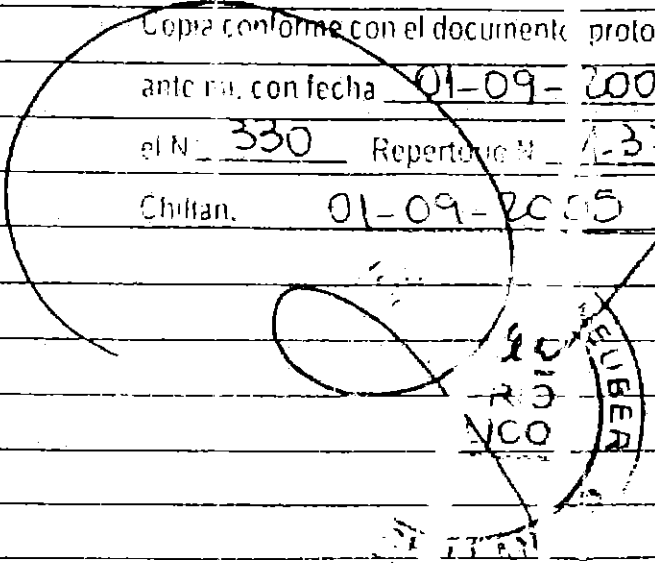 Copia conforme con el documento proto
ante mi. con fecha 01-09-200
el N 330 Repertorio N 1.3
Chillan. 01-09-2005
RIO
NCO
ELIBER